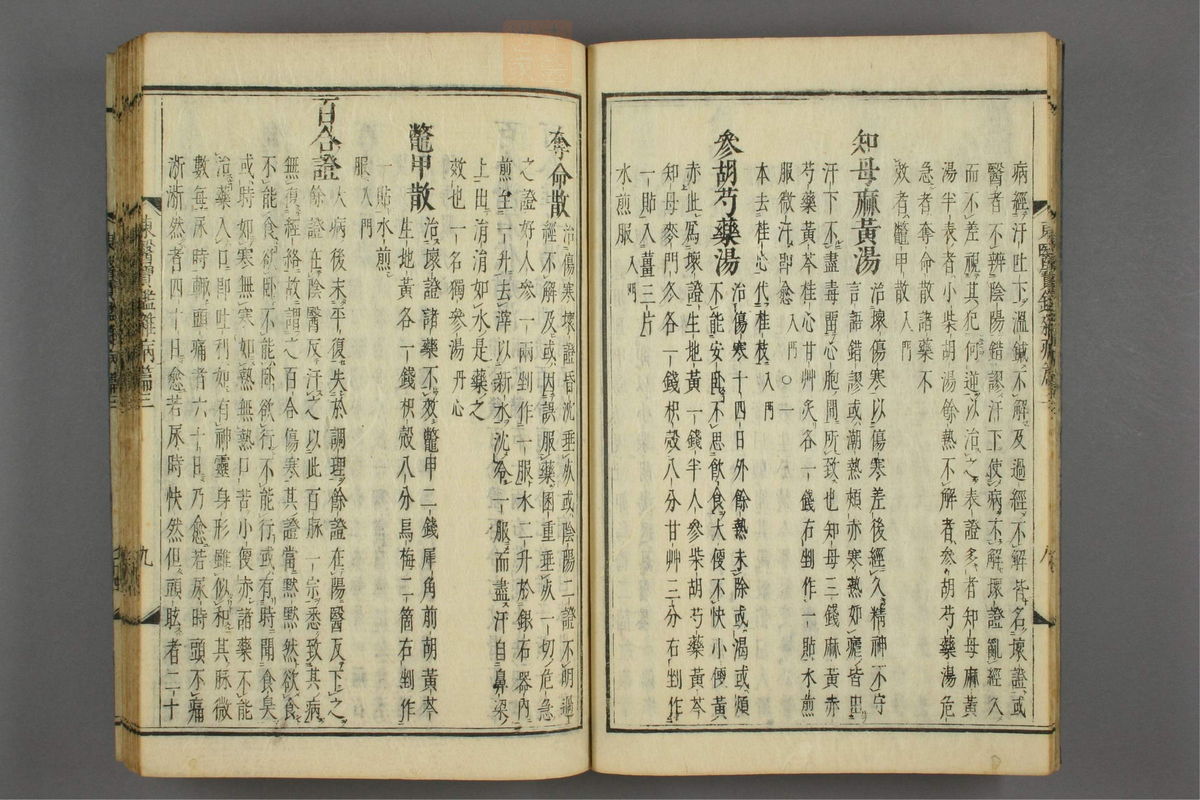 病經汗吐下溫鍼不解及過經不解皆名壞證或
醫者不辨陰陽錯謬汗下使病不解壞證亂經久
而不差視其犯何逆以治之表證多者知母麻黃
湯半表者小柴胡湯餘熱不解者參胡芍藥湯危
急者奪命散諸藥不
效者鼈甲散入門
知母麻黃湯 治壞傷寒以傷寒差後經久精神不守
言語錯謬或潮熱頰赤寒熱如瘧皆由
汗下不盡毒畱心胞間所致也知母三錢麻黃赤
芍藥黃芩桂心甘艸炙各一錢右剉作一貼水煎
服微汗卽愈入門○一
本去桂心代桂枝入門
參胡芍藥湯 治傷寒十四日外餘熱未除或渴或煩
不能安臥不思飮食大便不快小便黃
赤此爲壞證生地黃一錢半人參柴胡芍藥黃芩
知母麥門冬各一錢枳殼八分甘艸三分右剉作
一貼入薑三片
水煎服入門
奪命散 治傷寒壞證昏沈垂死或陰陽二證不明過
經不解及或因誤服藥困重垂死一切危急
之證好人參一兩剉作一服水二升於銀石器內
煎至一升去滓以新水沈冷一服而盡汗自鼻梁
上出涓涓如水是藥之
效也一名獨參湯丹心
鼈甲散 治壞證諸藥不效鼈甲二錢犀角前胡黃芩
生地黃各一錢枳殼八分烏梅二箇右剉作
一貼水煎
服入門
百合證 大病後未平復失於調理餘證在陽醫反下之
餘證在陰醫反汗之以此百脉一宗悉致其病
無復經絡故謂之百合傷寒其證當默默然欲食
不能食欲臥不能臥欲行不能行或有時聞食臭
或時如寒無寒如熱無熱口苦小便赤諸藥不能
治藥入口卽吐利如有神靈身形雖似和其脉微
數每尿時輒頭痛者六十日乃愈若尿時頭不痛
淅淅然者四十日愈若尿時快然但頭眩者二十
東醫寶鑑雜病篇三
九